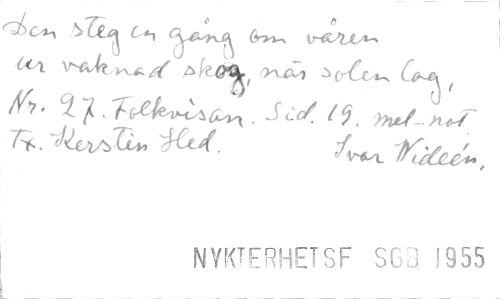 Den steg en gång om våren
ur vaknad skog, når solen log,
Nr. 27. Folkvisan. Sid. 19. mel-not.
Tx. Kersten Hed. Ivar Widéen.
NYKTERHETSF SGB 1955